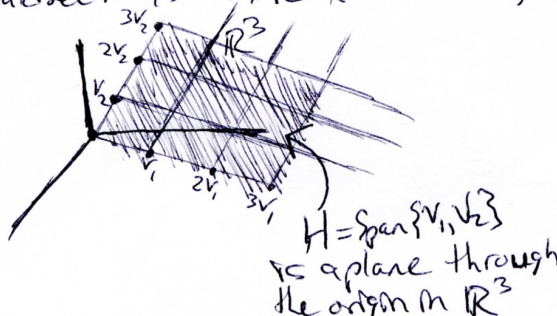 3v₂
ℝ³
2v₂
v₂
v₁
2v₁
3v₁
H = Span{v₁, v₂}
is a plane through
the origin in ℝ³